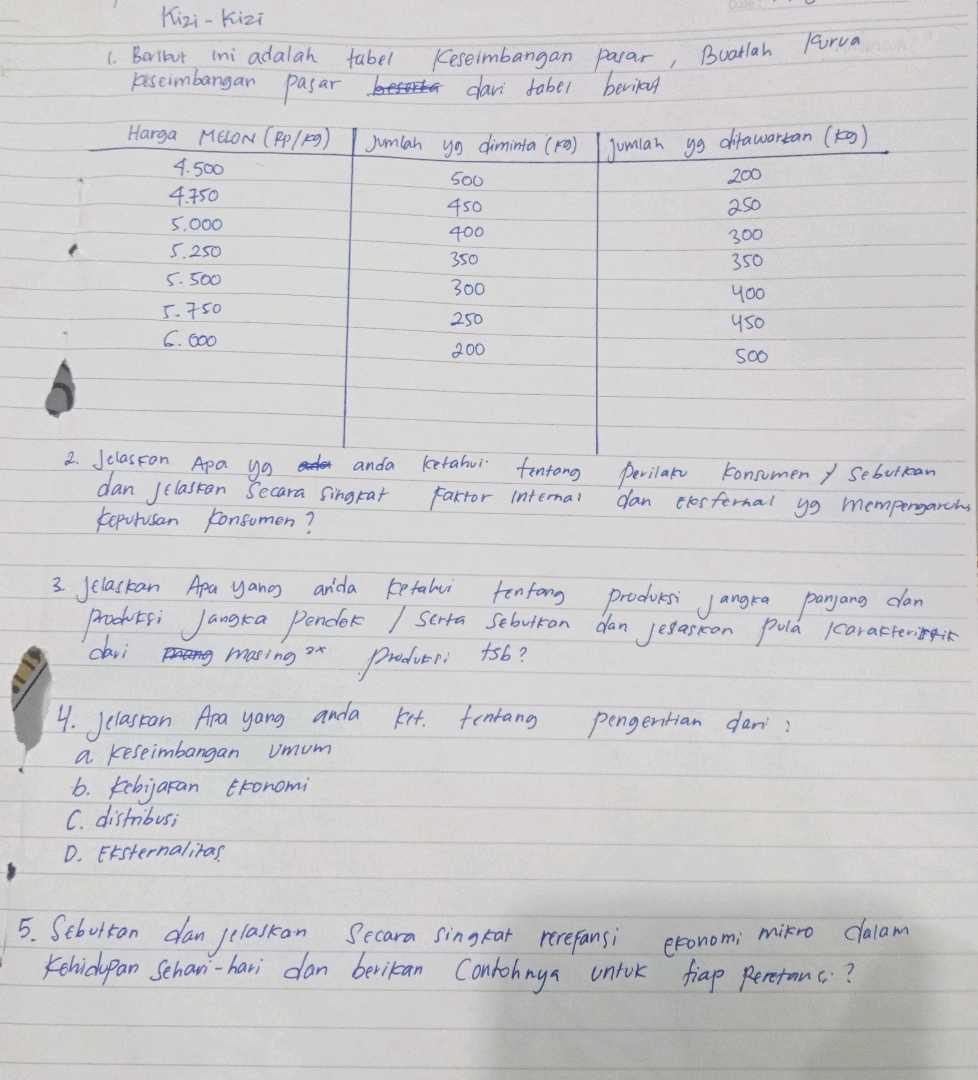 Kizi - Kizi
1. Berikut ini adalah tabel Keseimbangan pasar, Buatlah Kurva
keseimbangan pasar beserta dari tabel berikut
Harga MELON (Rp/kg) Jumlah yg diminta (kg) Jumlah yg ditawarkan (kg)
4.500 500 200
4.750 450 250
5.000 400 300
5.250 350 350
5.500 300 400
5.750 250 450
6.000 200 500
2. Jelaskan Apa yg ada anda ketahui tentang perilaku konsumen / Sebutkan
dan jelaskan Secara singkat Faktor internal dan eksternal yg mempengaruhi
keputusan konsumen?
3. Jelaskan Apa yang anda ketahui tentang produksi jangka panjang dan
produksi jangka pendek / serta sebutkan dan jelaskan pula karakteristik
dari masing 2x produksi tsb?
4. Jelaskan Apa yang anda ket. tentang pengertian dari :
a. keseimbangan umum
b. kebijakan Ekonomi
C. distribusi
D. Eksternalitas
5. Sebutkan dan jelaskan Secara Singkat rerefansi ekonomi mikro dalam
kehidupan Sehari-hari dan berikan Contohnya untuk tiap